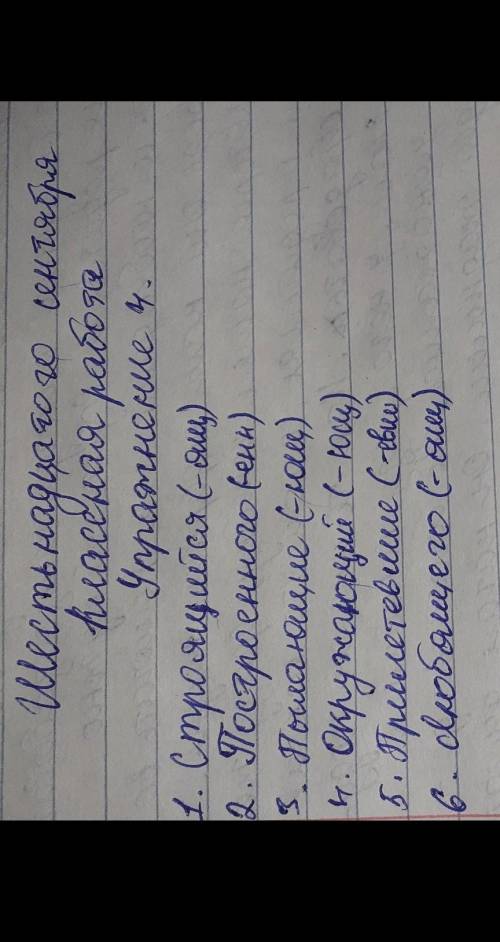 Шестьнадцатого сентября
Классная работа
Упражнение 4.
1. Строящийся (-ящ)
2. Построенного (енн)
3. Пылающие (-ющ)
4. Окружающий (-ющ)
5. Прилетевшие (-вш)
6. Любящего (-ящ)